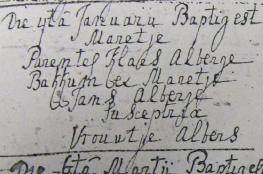 Die 9ta Januarij Baptizest
Maretje
Parentes Klaes Alberse
Maretje
Jans Alberse
Susceptrix
Vrouwtje Albers
Die 6ta Martij Baptizest